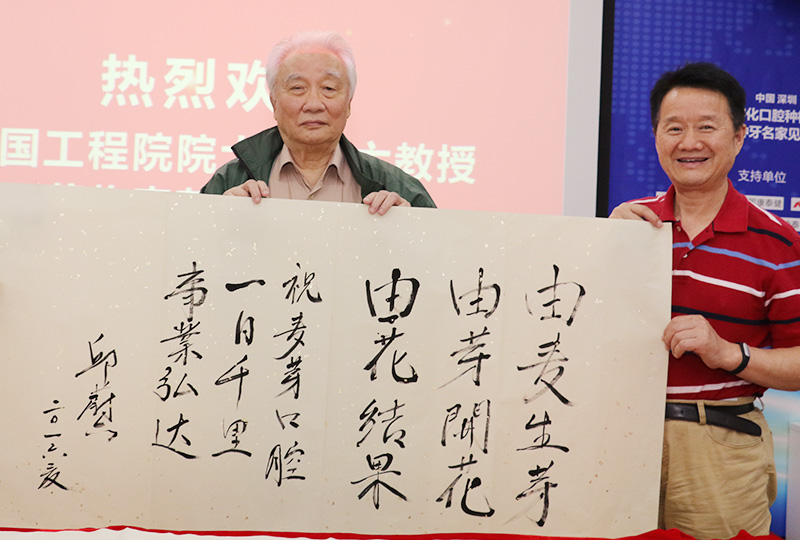 热烈欢
国工程院院
教授
中国 深圳
化口腔种
牙名家见
支持单位
康泰健
由麦生芽
由芽開花
由花结果
祝麦芽口腔
一日千里
事業弘达
邱蔚六
二〇一六夏